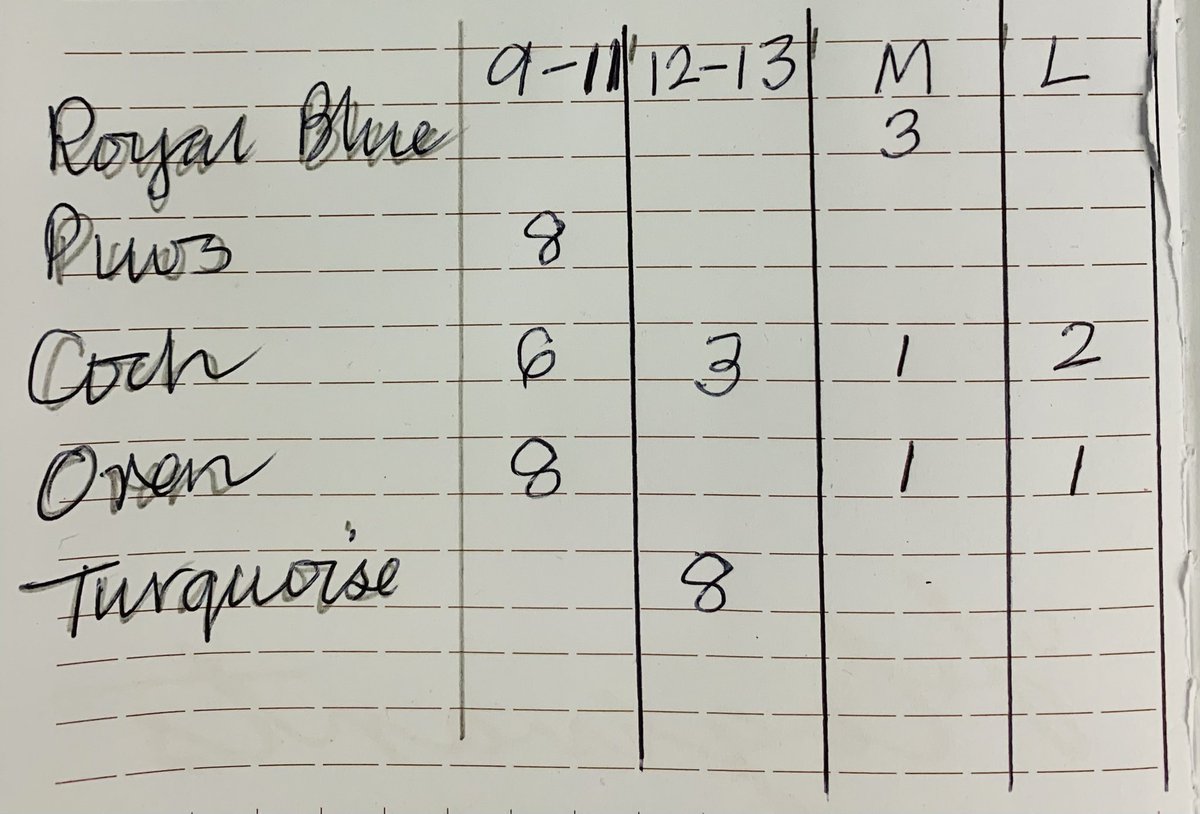 9-11 12-13 M L
Royal Blue 3
Piws 8
Coch 6 3 1 2
Oren 8 1 1
Turquoise 8